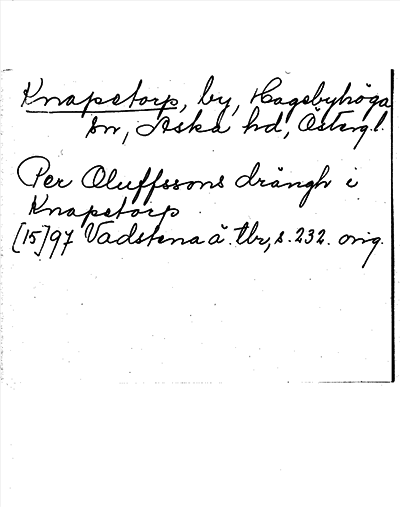 Knapetorp, by, Hagebyhöga
sn, Aska hd, Östergl.
Per Oluffssons drängh i
Knapetorp
[15]97 Vadstena ä. tbr, s. 232. orig.